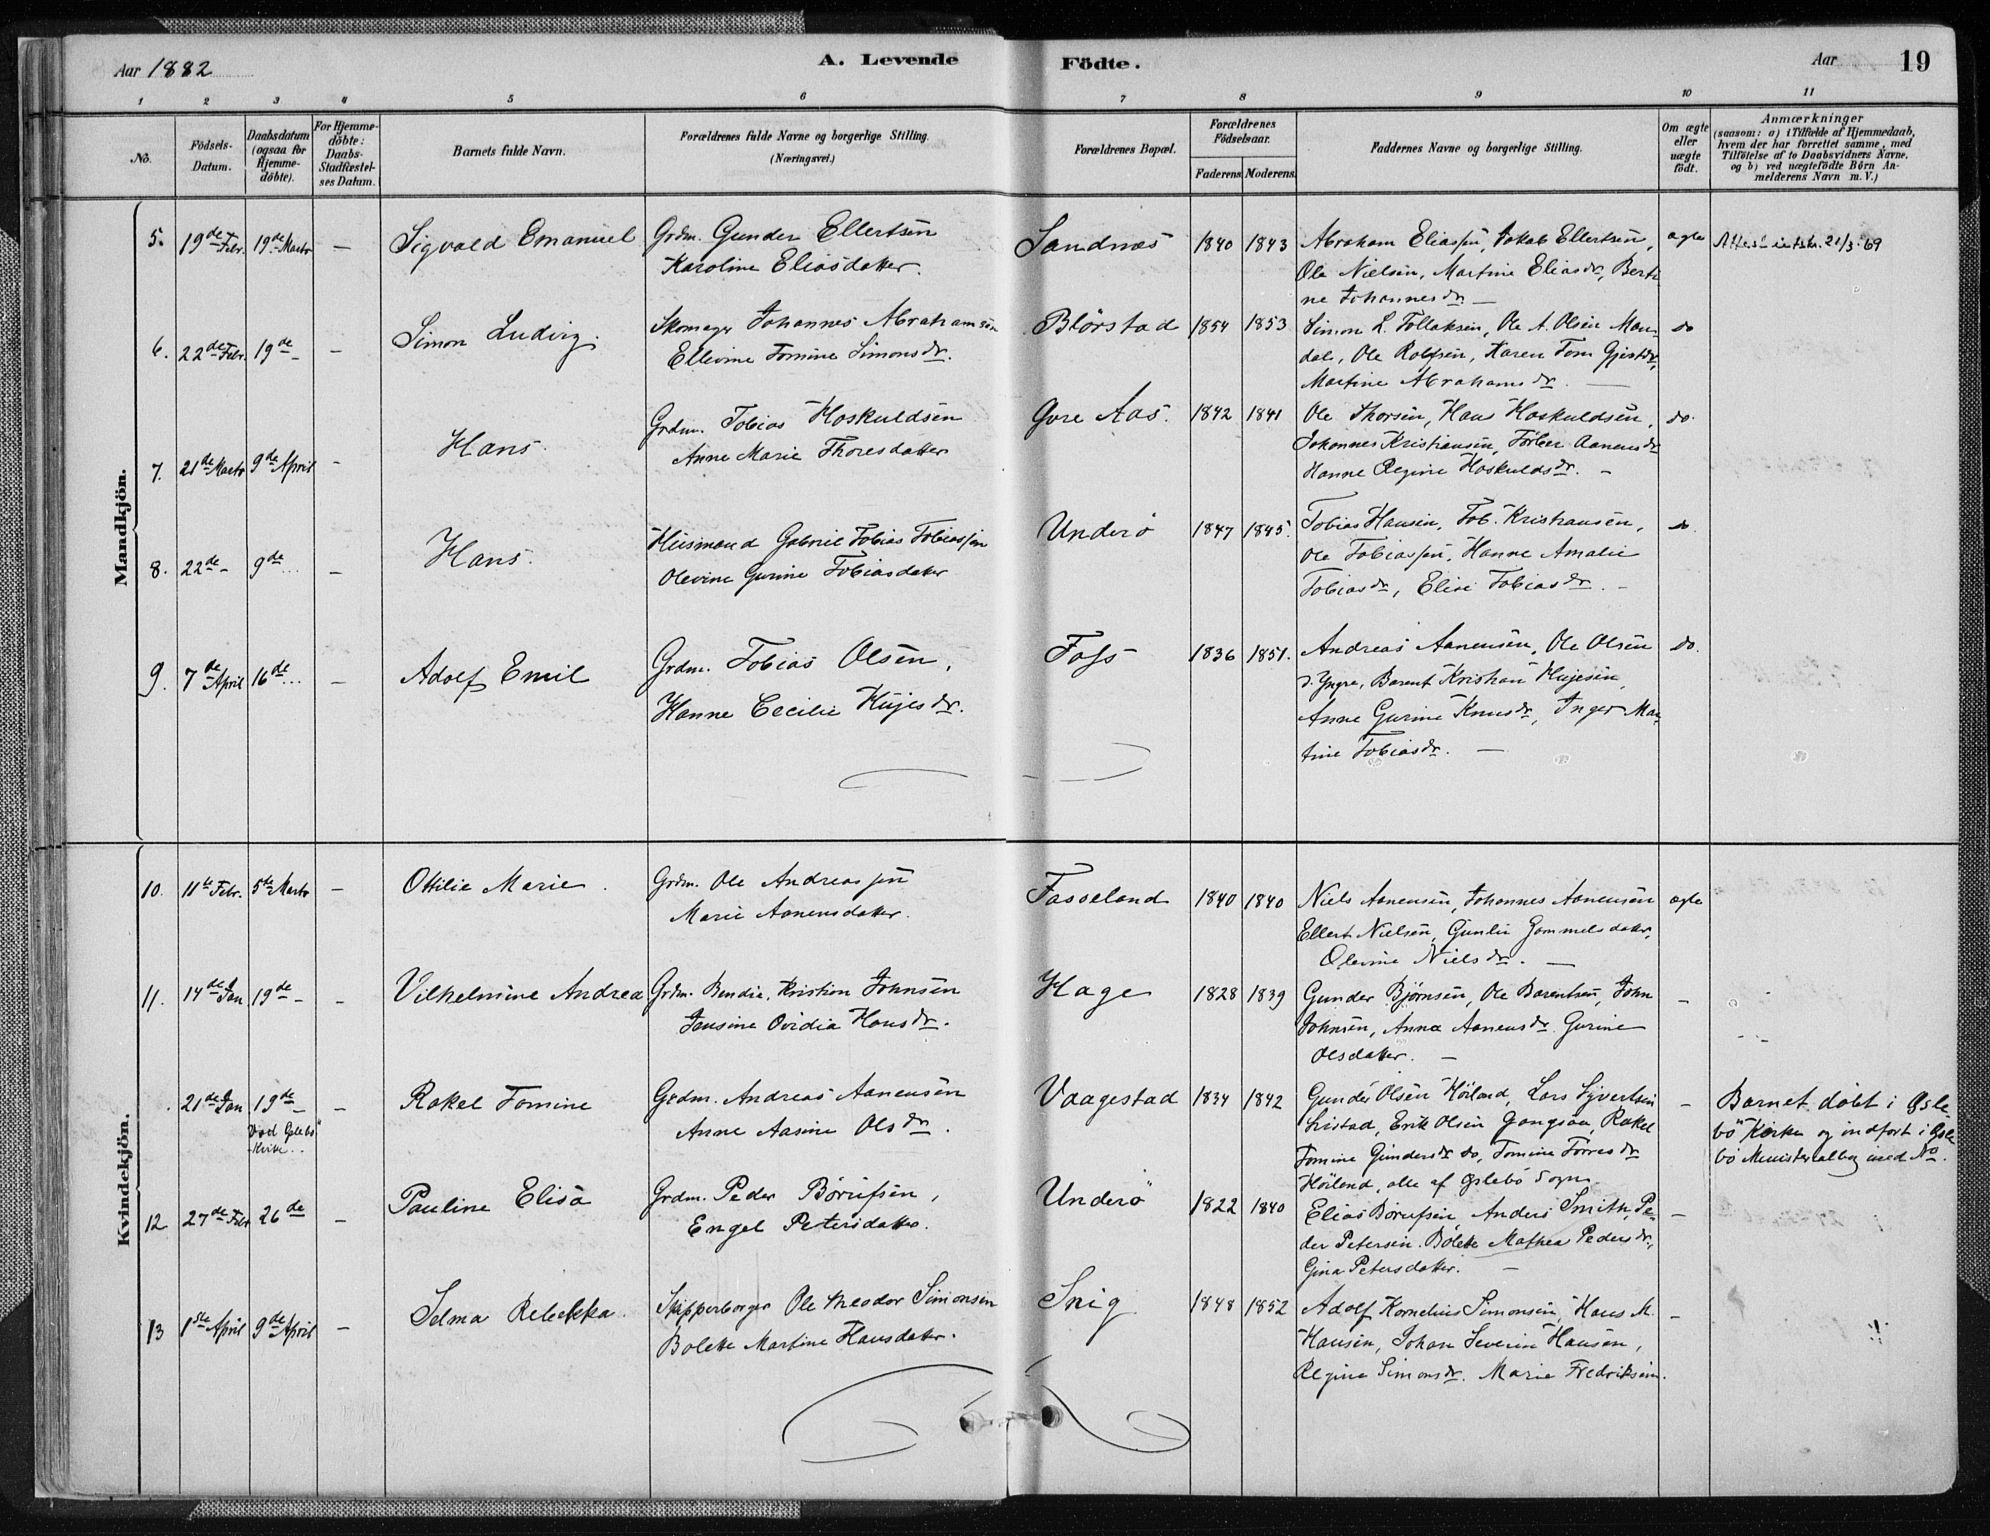 Aar 1882
A. Levende
Födte.
Aar
19
1 2 3 4 5 6 7 8 9 10 11
No.
Födsels-
Datum.
Daabsdatum
(ogsaa for
Hjemme-
döbte).
For Hjemme-
döbte:
Daabs-
Stadfæstel-
ses Datum.
Barnets fulde Navn.
Forældrenes fulde Navne og borgerlige Stilling.
(Næringsvei.)
Forældrenes Bopæl.
Forældrenes
Födselsaar.
Faderens Moderens
Faddernes Navne og borgerlige Stilling.
Om ægte
eller
uægte
födt.
Anmærkninger
(saasom: a) i Tilfælde af Hjemmedaab,
hvem der har forrettet samme, med
Tilföielse af to Daabsvidners Navne,
og b) ved uægtefödte Börn An-
melderens Navn m. V.)
Mandkjön.
5. 19de Febr. 19de Marts — Sigvald Emanuel Grdm. Gunder Ellertsen Sandnæs 1840 1843 Abraham Eliassen, Jakob Ellertsen, ægte 21/3-69
Karoline Eliasdatter. Ole Nielsen, Martine Eliasdr, Berti
ne Johannesdr —
6. 22de Febr. 19de — — Simon Ludvig. Skomager Johannes Abrahamsen Blørstad 1854 1853 Simon L. Tollaksen, Ole A. Olsen Man- do
Ellevine Tomine Simonsdr. dal, Ole Rolfsen, Karen Tom.
Martine Abrahamsdr. —
7. 21de Marts 9de April - Hans. Grdm. Tobias Hoskuldsen Øvre Aas. 1842 1841 Ole Thorsen, Hans Hoskuldsen, do.
Anne Marie Thoresdatter Johannes Kristiansen, Aanensdr
Hanne Regine Hoskuldsdr. -
8. 22de - 9de ... — Hans. Husmand Gabriel Tobias Tobiassen Underø 1847 1845. Tobias Hansen, Tob. Kristiansen, do
Olevine Gurine Tobiasdatter Ole Tobiassen, Hanne Amalie
Tobiasdr, Elise Tobiasdr. -
9. 7de April 16de ... — Adolf Emil Grdm. Tobias Olsen, Foss 1836 1851. Andreas Aanensen, Ole Olsen do.
Hanne Cecilie Hujesdr. d. Yngre, Barent Kristian Hujesen,
Anne Gurine Knusdr, Inger Mar-
tine Tobiasdr. —
Kvindekjön.
10. 11te Febr. 5te Marts — Ottilie Marie. Grdm. Ole Andreassen Fasseland 1840 1840 Niels Aanensen, Johannes Aanensen ægte
Marie Aanensdatter. Ellert Nielsen, Gunlie Gommelsdatter,
Olevine Nielsdr. —
11. 14de Jan 19de - - Vilhelmine Andrea Grdm. Bendix. Kristian Johnsen Hage 1828 1839 Gunder Bjørnsen, Ole Barentsen, John —
Jensine Ovidia Hansdr. Johnsen, Anna Aanensdr. Gurine
Olsdatter. —
. 21de Jan 19de - - Rakel Tomine Grdm. Andreas Aanensen Vaagestad 1834 1842 Gunder Olsen Høiland, Lars Syvertsen — Barnet døbt i Øsle-
Ved Øslebö Kirke.. Anne Aasine Olsdr. Listad, Erik Olsen Gangsaa, Rakel bö Kirke og indført i Øsle
Tomine Gundersdr do, Tomine Torresdr bö Ministerialbog med No.
Høiland, alle af Øslebö Sogn.
12 27de Febr 26de — Pauline Elisa Grdm. Peder Börrufsen, Underö 1822 1840 Elias Börufsen, Anders Smith, Pe- —
Engel Petersdatter. der Petersen. Bolette Mathea Pedersdr.,
Gina Petersdatter. —
13 1ste April 9de April — Selma Rebekka. Skipperborger Ole Theodor Simonsen Snig 1848 1852 Adolf Kornelius Simonsen, Hans M. —
Bolette Martine Hansdatter. Hansen, Johan Severin Hansen,
Regine Simonsdr. Marie Fredriksen.